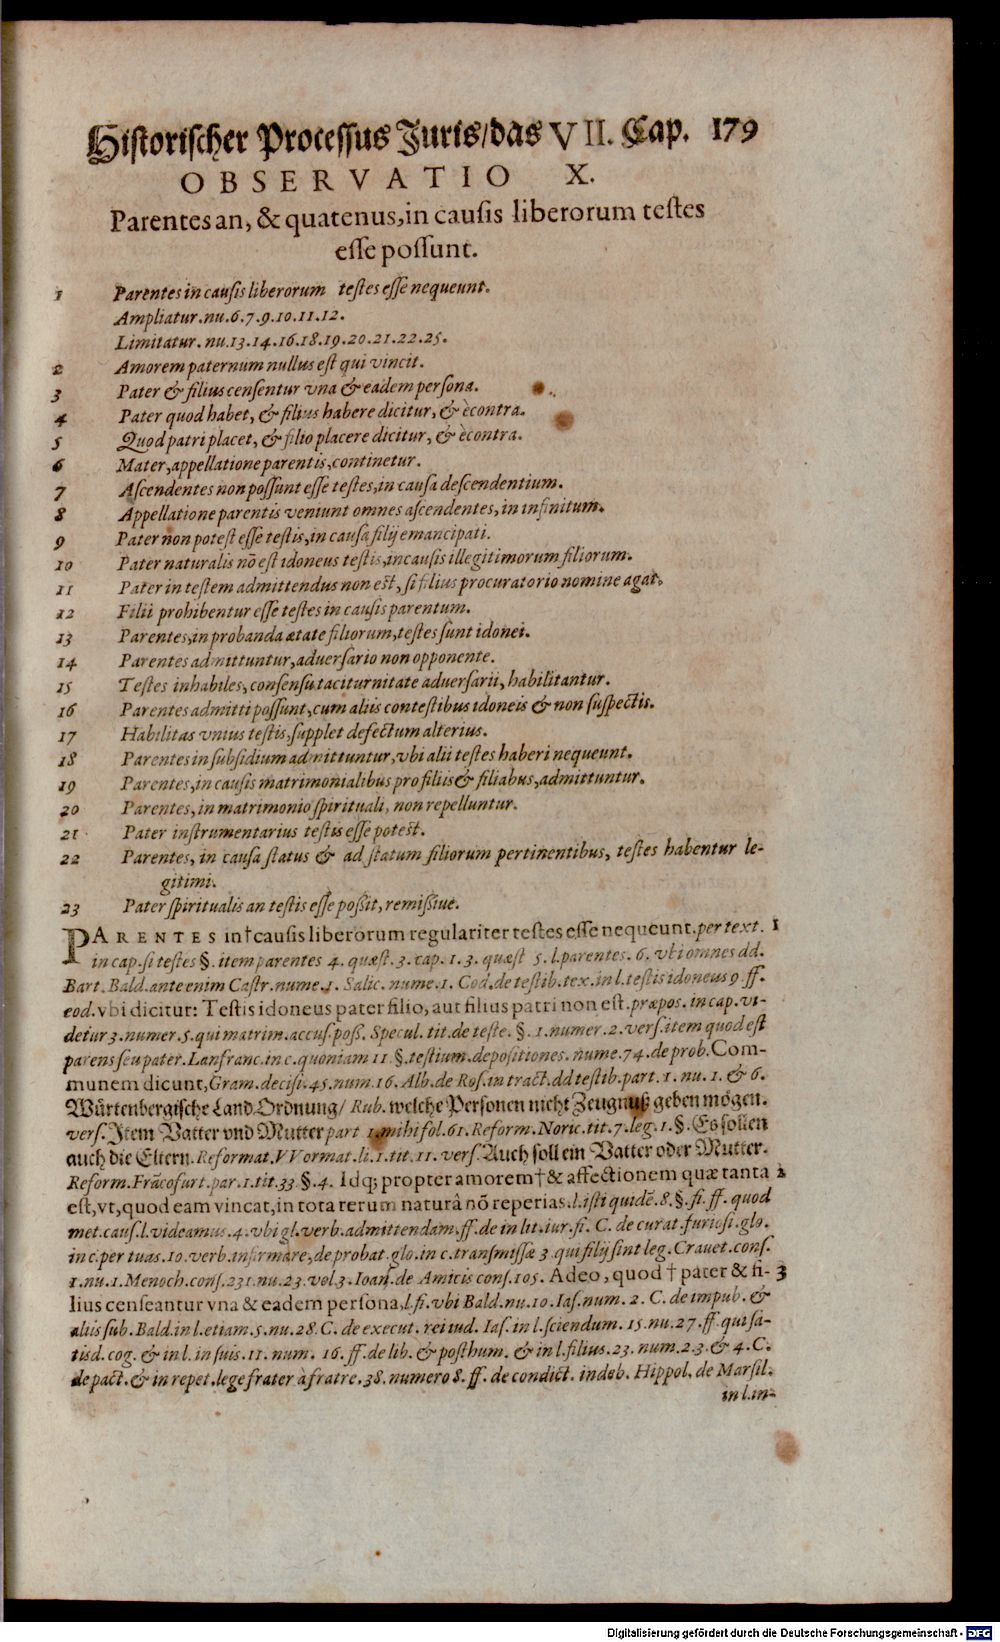 Historischer Processus Juris/das VII. Cap. 179
OBSERVATIO X.
Parentes an, & quatenus, in causis liberorum testes
esse possunt.
1 Parentes in causis liberorum testes esse nequeunt.
Ampliatur. nu. 6. 7. 9. 10. 11. 12.
Limitatur. nu. 13. 14. 16. 18. 19. 20. 21. 22. 25.
2 Amorem paternum nullus est qui vincit.
3 Pater & filius censentur vna & eadem persona.
4 Pater quod habet, & filius habere dicitur, & è contra.
5 Quod patri placet, & filio placere dicitur, & è contra.
6 Mater, appellatione parentis, continetur.
7 Ascendentes non possunt esse testes, in causa descendentium.
8 Appellatione parentis veniunt omnes ascendentes, in infinitum.
9 Pater non potest esse testis, in causa filij emancipati.
10 Pater naturalis nō est idoneus testis, in causis illegitimorum filiorum.
11 Pater in testem admittendus non est, si filius procuratorio nomine agat.
12 Filii prohibentur esse testes in causis parentum.
13 Parentes, in probanda ætate filiorum, testes sunt idonei.
14 Parentes admittuntur, adversario non opponente.
15 Testes inhabiles, consensu taciturnitate adversarii, habilitantur.
16 Parentes admitti possunt, cum aliis contestibus idoneis & non suspectis.
17 Habilitas vnius testis, supplet defectum alterius.
18 Parentes in subsidium admittuntur, vbi alii testes haberi nequeunt.
19 Parentes, in causis matrimonialibus pro filiis & filiabus, admittuntur.
20 Parentes, in matrimonio spirituali, non repelluntur.
21 Pater instrumentarius testis esse potest.
22 Parentes, in causa status & ad statum filiorum pertinentibus, testes habentur le-
gitimi.
23 Pater spiritualis an testis esse poßit, remißiue.
PARENTES in† causis liberorum regulariter testes esse nequeunt. per text. 1
in cap. si testes §. item parentes 4. quæst. 3. cap. 1. 3. quæst 5. l. parentes. 6. vbi omnes dd.
Bart. Bald. ante enim Castr. nume. 1. Salic. nume. 1. Cod. de testib. tex. in l. testis idoneus 9. ff.
eod. vbi dicitur: Testis idoneus pater filio, aut filius patri non est. præpos. in cap. vi-
detur 3. numer. 5. qui matrim. accus. poß. Specul. tit. de teste. §. 1. numer. 2. vers. item quod est
parens seu pater. Lanfranc. in c. quoniam 11 §. testium. depositiones. nume. 74. de prob. Com-
munem dicunt, Gram. decisi. 45. num. 16. Alb. de Ros. in tract. dd testib. part. 1. nu. 1. & 6.
Würtenbergische Land Ordnung/ Rub. welche Personen nicht Zeugnuß geben mögen.
vers. Item Vatter vnd Mutter part 1. mihi fol. 61. Reform. Noric. tit. 7. leg. 1. §. Es sollen
auch die Eltern. Reformat. VVormat. li. 1. tit. 11. vers. Auch soll ein Vatter oder Mutter.
Reform. Frācofurt. par. 1. tit. 33 §. 4. Idq; propter amorem† & affectionem quæ tanta 2
est, vt, quod eam vincat, in tota rerum naturâ nō reperias. l. isti quidē. 8. §. fi. ff. quod
met. caus. l. videamus. 4. vbi gl. verb. admittendam. ff. de in lit. iur. fi. C. de curat. furiosi. glo.
in c. per tuas. 10. verb. infirmare, de probat. glo. in c. transmissæ 3. qui filij sint leg. Cravet. cons.
1. nu. 1. Menoch. cons. 231. nu. 23. vol. 3. Ioan. de Amicis cons. 105. Adeo, quod † pater & fi- 3
lius censeantur vna & eadem persona, l. fi. vbi Bald. nu. 10. Ias. num. 2. C. de impub. &
aliis sub. Bald. in l. etiam. 5. nu. 28. C. de execut. rei iud. Ias. in l. sciendum. 15. nu. 27. ff. qui sa-
tisd. cog. & in l. in suis. 11. num. 16. ff. de lib. & posthum. & in l. filius. 23. num. 2. 3. & 4. C.
de pact. & in repet. lege frater à fratre. 38. numero 8. ff. de condict. indeb. Hippol. de Marsil.
in l. in-
Digitalisierung gefördert durch die Deutsche Forschungsgemeinschaft - DFG